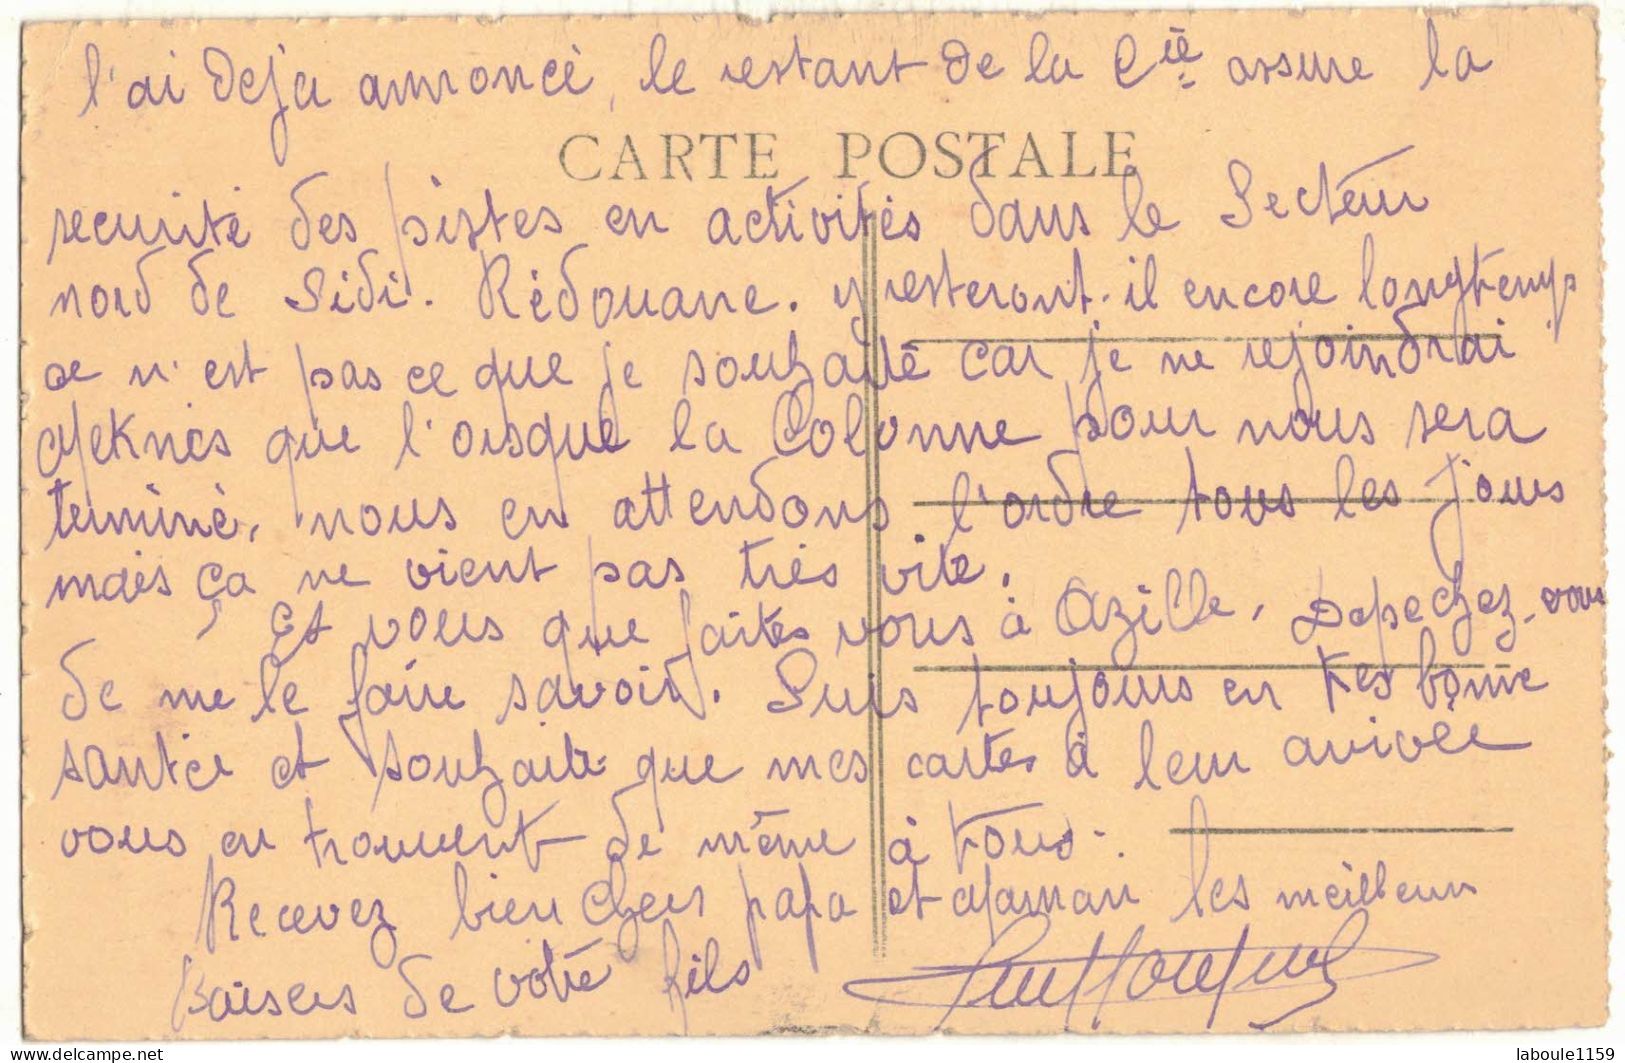 l'ai deja annoncé, le restant de la Cie assure la
CARTE POSTALE
securité des pistes en activités dans le Secteur
nord de Sidi. Rédouane. y resteront-il encore longtemps
ce n'est pas ce que je souhaite car je ne rejoindrai
Meknes que l'orsque la Colonne pour nous sera
terminé, nous en attendons l'ordre tous les jours
mais ça ne vient pas très vite.
Et vous que faites vous à Azille. Depechez-vous
de me le faire savoir. Suis toujours en tres bonne
santée et souhaite que mes cartes à leur arrivée
vous en trouvent de même à tous.
Recevez bien chers papa et Maman les meilleurs
Baisers de votre fils
delcampe.net
laboule1159